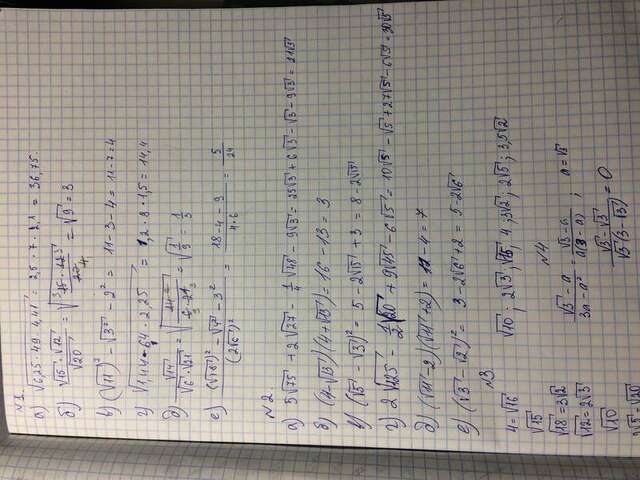 №1.
а) √6,25·49·4,41 = 2,5·7·2,1 = 36,75.
б) √15·√12 / √20 = √(15·12 / 20) = √9 = 3
в) (√11)² - √3² - 2² = 11-3-4 = 11-7=4
г) √1,44·64·2,25 = 1,2·8·1,5 = 14,4
д) √14 / √6·√21 = √(14 / 6·21) = √(1/9) = 1/3
е) ((√18)² - √4² - 3²) / (2√6)² = (18-4-9) / 4·6 = 5/24
№2.
а) 5√75 + 2√27 - 1/4 √48 - 9√3 = 25√3 + 6√3 - √3 - 9√3 = 21√3
б) (4-√13)(4+√13) = 16-13 = 3
в) (√5 - √3)² = 5 - 2√15 + 3 = 8-2√15
г) 2√125 - 1/2 √20 + 9√45 - 6√5 = 10√5 - √5 + 27√5 - 6√5 = 30√5
д) (√11-2)(√11+2) = 11-4 = 7
е) (√3 - √2)² = 3-2√6+2 = 5-2√6
№3.
4=√16 √10; 2√3; √15; 4; 3√2; 2√5; 3,5√2
√15
№4.
√18=3√2 (√3 - a) / (3a - a²) = (√3-a) / a(3-a); a=√3
√12=2√3
√10 (√3-√3) / √3(3-√3) = 0
2√5=√20